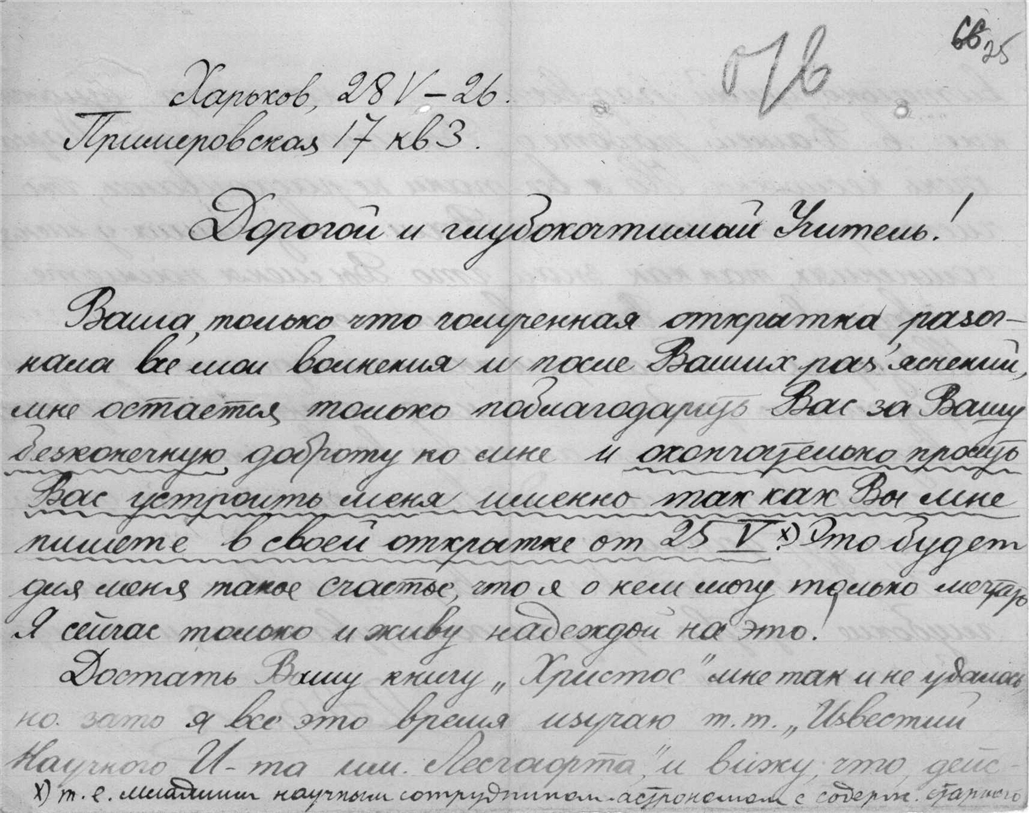 66 25
О/б
Харьков, 28 V – 26.
Примеровская 17 кв 3.
Дорогой и глубокочтимый Учитель!
Ваша, только что полученная открытка разог-
нала все мои волнения и после Ваших раз'яснений,
мне остается только поблагодарить Вас за Вашу
безконечную доброту ко мне и окончательно просить
Вас устроить меня именно так как Вы мне
пишете в своей открытке от 25 V x) Это будет
для меня такое счастье, что я о нем могу только мечтать
Я сейчас только и живу надеждой на это!
Достать Вашу книгу „Христос" мне так и не удалось
но зато я все это время изучаю т.т. „Известий
Научного И-та им. Лесгафта", и вижу, что, дейс-
x) т.е. младшим научным сотрудником-астрономом с содерж. старшего